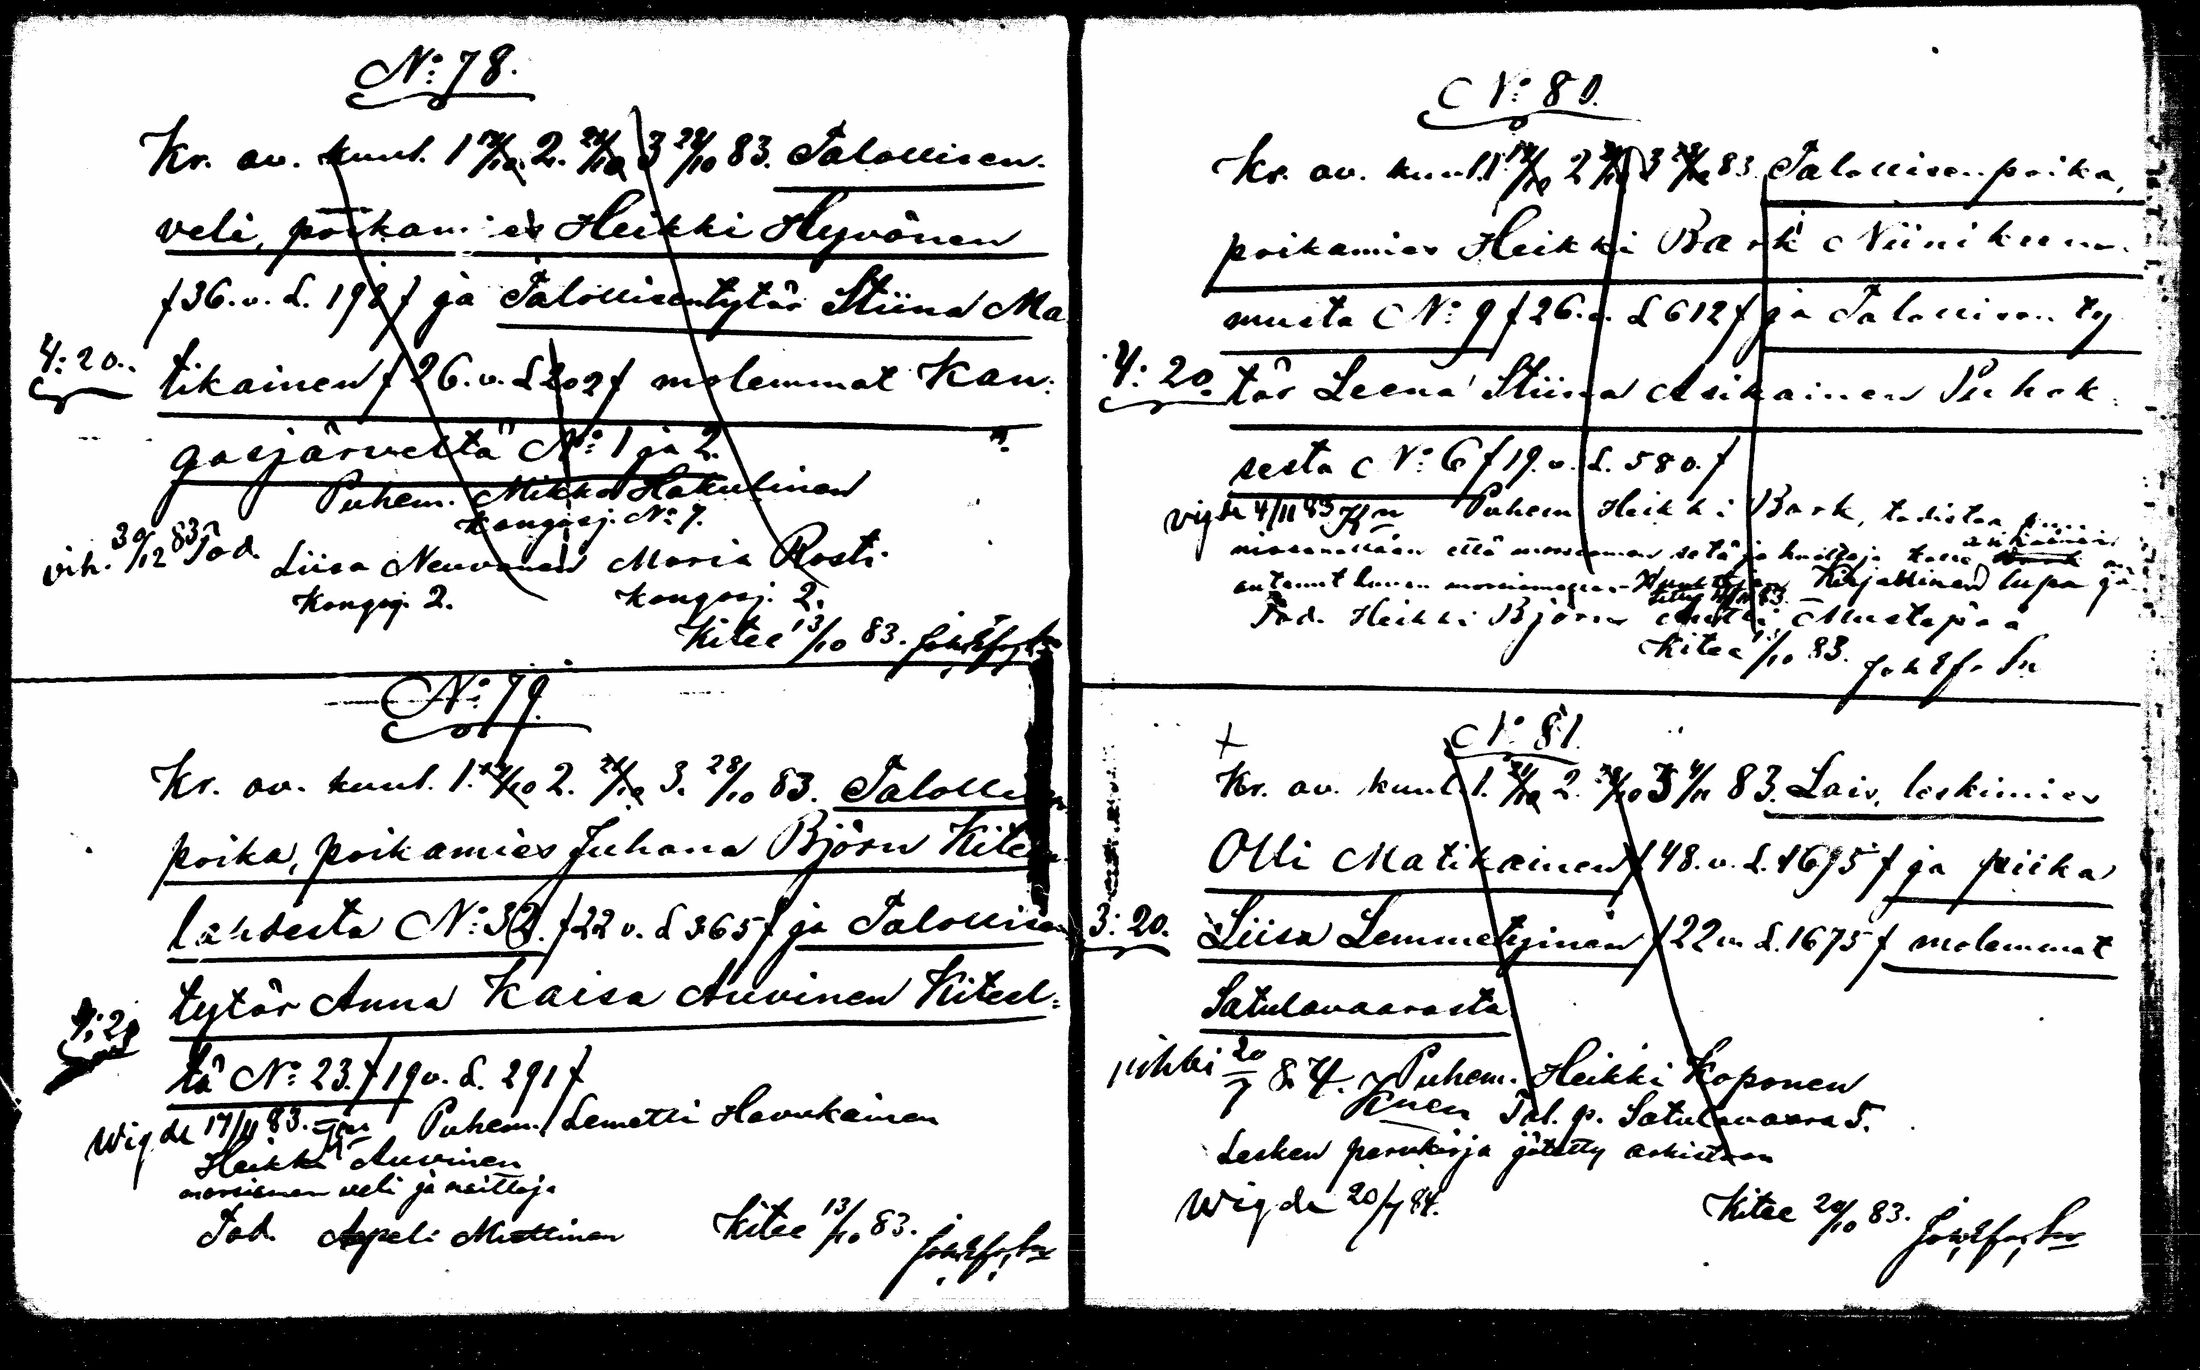 No: 78.
Kr. av. kuul. 1 14/10. 2. 21/10 3 28/10 83. Talollisen-
veli, poikamies Heikki Hyvönen
f 36. v. L. 198 f ja Talollisentytär Stiina Ma
4: 20.. tikainen f 26. v. L 202 f molemmat Kan:
gasjärveltä No: 1 ja 2.
Puhem. Mikko Hakulinen
Kangasj. No 7.
vih. 30/12 83 Tod. Liisa Neuvonen Maria Rosti
Kangasj. 2. Kangasj. 2.
Kitee 13/10 83.
No: 79.
Kr. av. kuul. 1. 14/10 2. 21/10 3. 28/10 83. Talollisen
poika, poikamies Juhana Björn Kitee
lahdesta No: 32. f 22 v. L 365 f ja Talollisen
tytär Anna Kaisa Auvinen Kiteel:
4: 20 tä No: 23. f 19 v. L. 291 f
Wigde 17/11 83. Puhem. Lemetti Havukainen
Heikki Auvinen
morsiamen veli ja naittaja
Tod. Apeli Miettinen Kitee 13/10 83.
No: 80.
Kr. av. kuul. 1 14/10 2 21/10 3 28/10 83 Talollisen poika,
poikamies Heikki Bark Niinikum-
musta No: 9 f 26. v. L 612 f ja Talollisen ty
4: 20. tär Leena Stiina Asikainen Puhok:
sesta No: 6 f 19. v. L. 580. f
vigde 4/11 83 Puhem Heikki Bark, todistaa
että morsiamen setä ja Asikainen on
antanut Kirjallinen lupa
Tod. Heikki Björn Antti Mustapää
Kitee 13/10 83.
No: 81.
Kr. av. kuul. 1. 21/10 2. 28/10 3 4/11 83. Lais. leskimies
Olli Matikainen f 48. v. L. 1675 f ja piika
3: 20. Liisa Lemmetyinen f 22 v. L. 1675 f molemmat
Satulavaarasta
vihki 20/7 84. Puhem. Heikki Koponen
Tal. p. Satulavaara 5.
Lesken perukirja jätetty arkistoon
Wigde 20/7 84. Kitee 20/10 83.